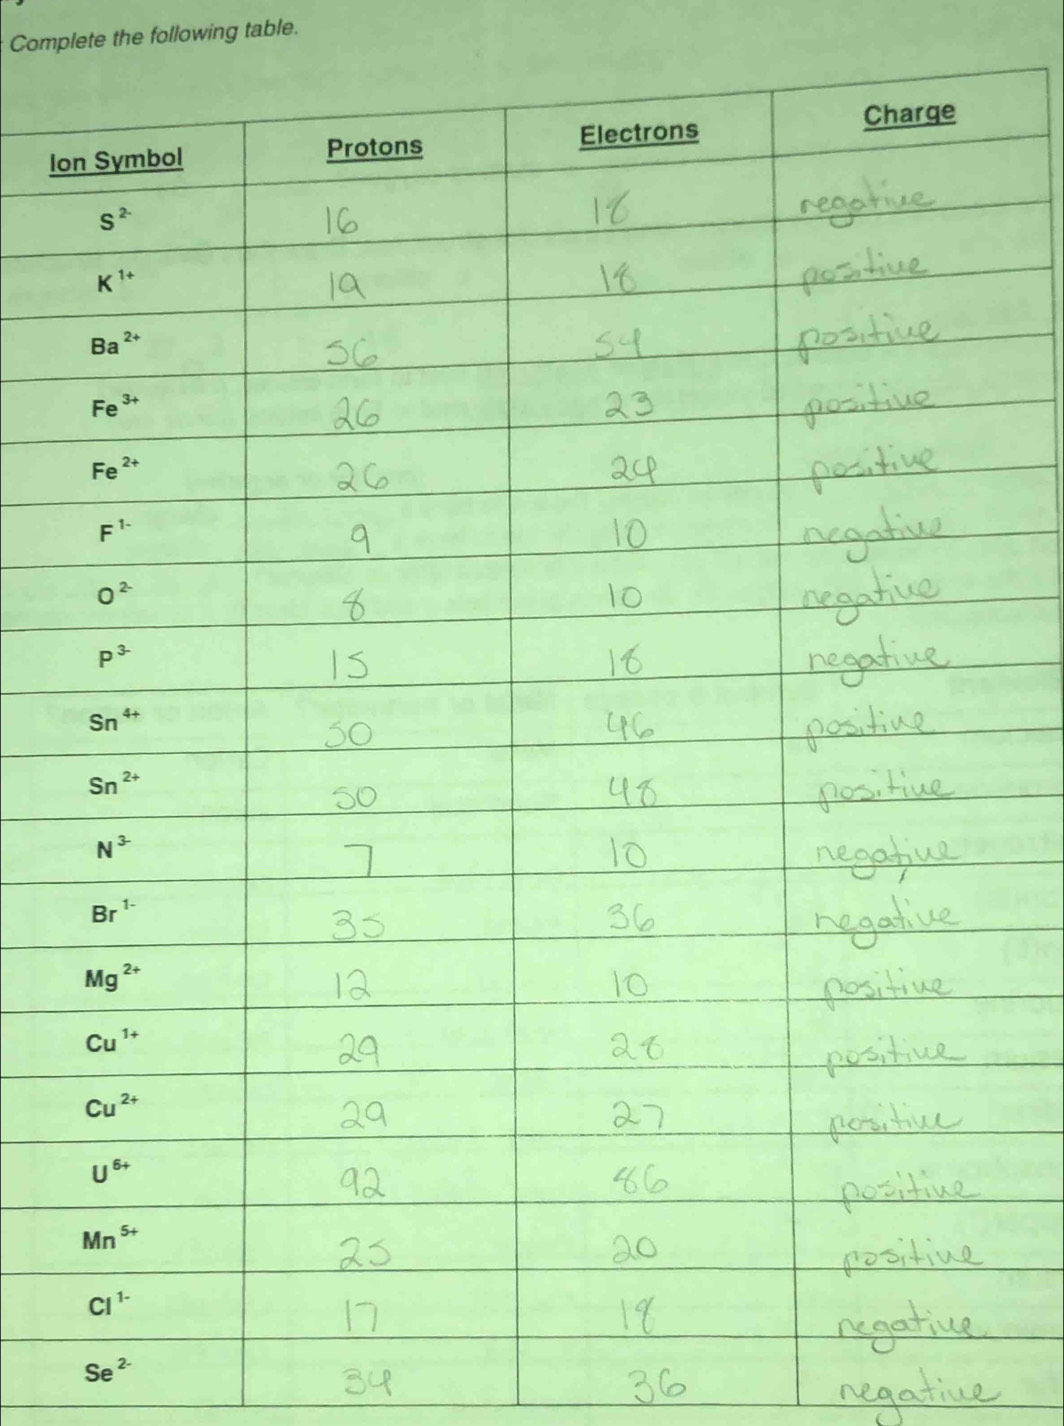 Complete the following table.
Ion Symbol Protons Electrons Charge
S 2- 16 18 negative
K 1+ 19 18 positive
Ba 2+ 56 54 positive
Fe 3+ 26 23 positive
Fe 2+ 26 24 positive
F 1- 9 10 negative
O 2- 8 10 negative
P 3- 15 18 negative
Sn 4+ 50 46 positive
Sn 2+ 50 48 positive
N 3- 7 10 negative
Br 1- 35 36 negative
Mg 2+ 12 10 positive
Cu 1+ 29 28 positive
Cu 2+ 29 27 positive
U 6+ 92 86 positive
Mn 5+ 25 20 positive
Cl 1- 17 18 negative
Se 2- 34 36 negative